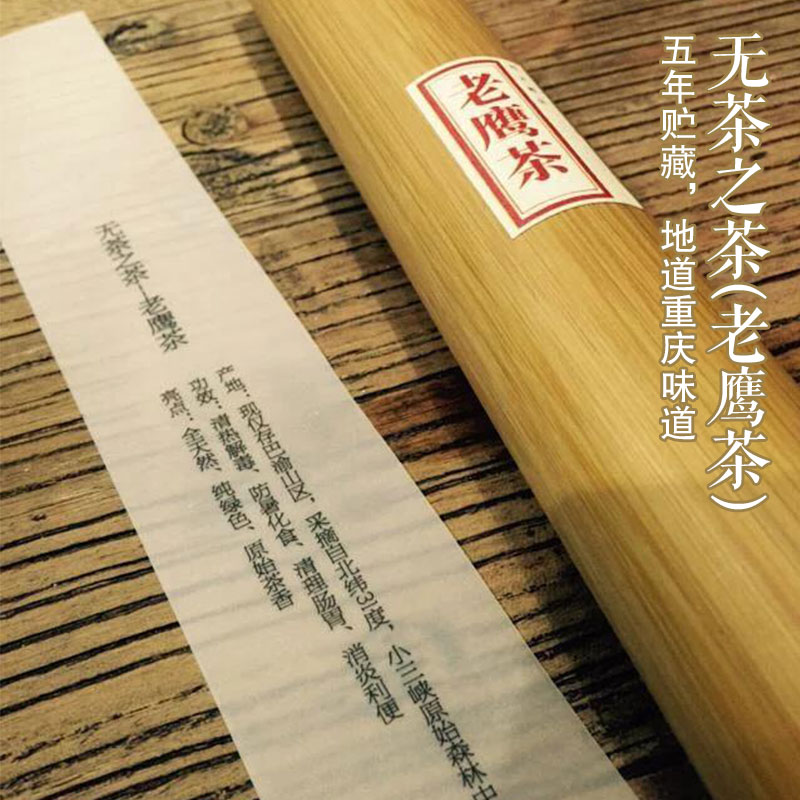 无茶之茶(老鹰茶)
五年贮藏，地道重庆味道
老鹰茶
无茶之茶—老鹰茶
产地：现仅存巴渝山区，采摘自北纬31度，小三峡原始森林中
功效：清热解毒、防暑化食、清理肠胃、消炎利便
亮点：全天然、纯绿色、原始茶香